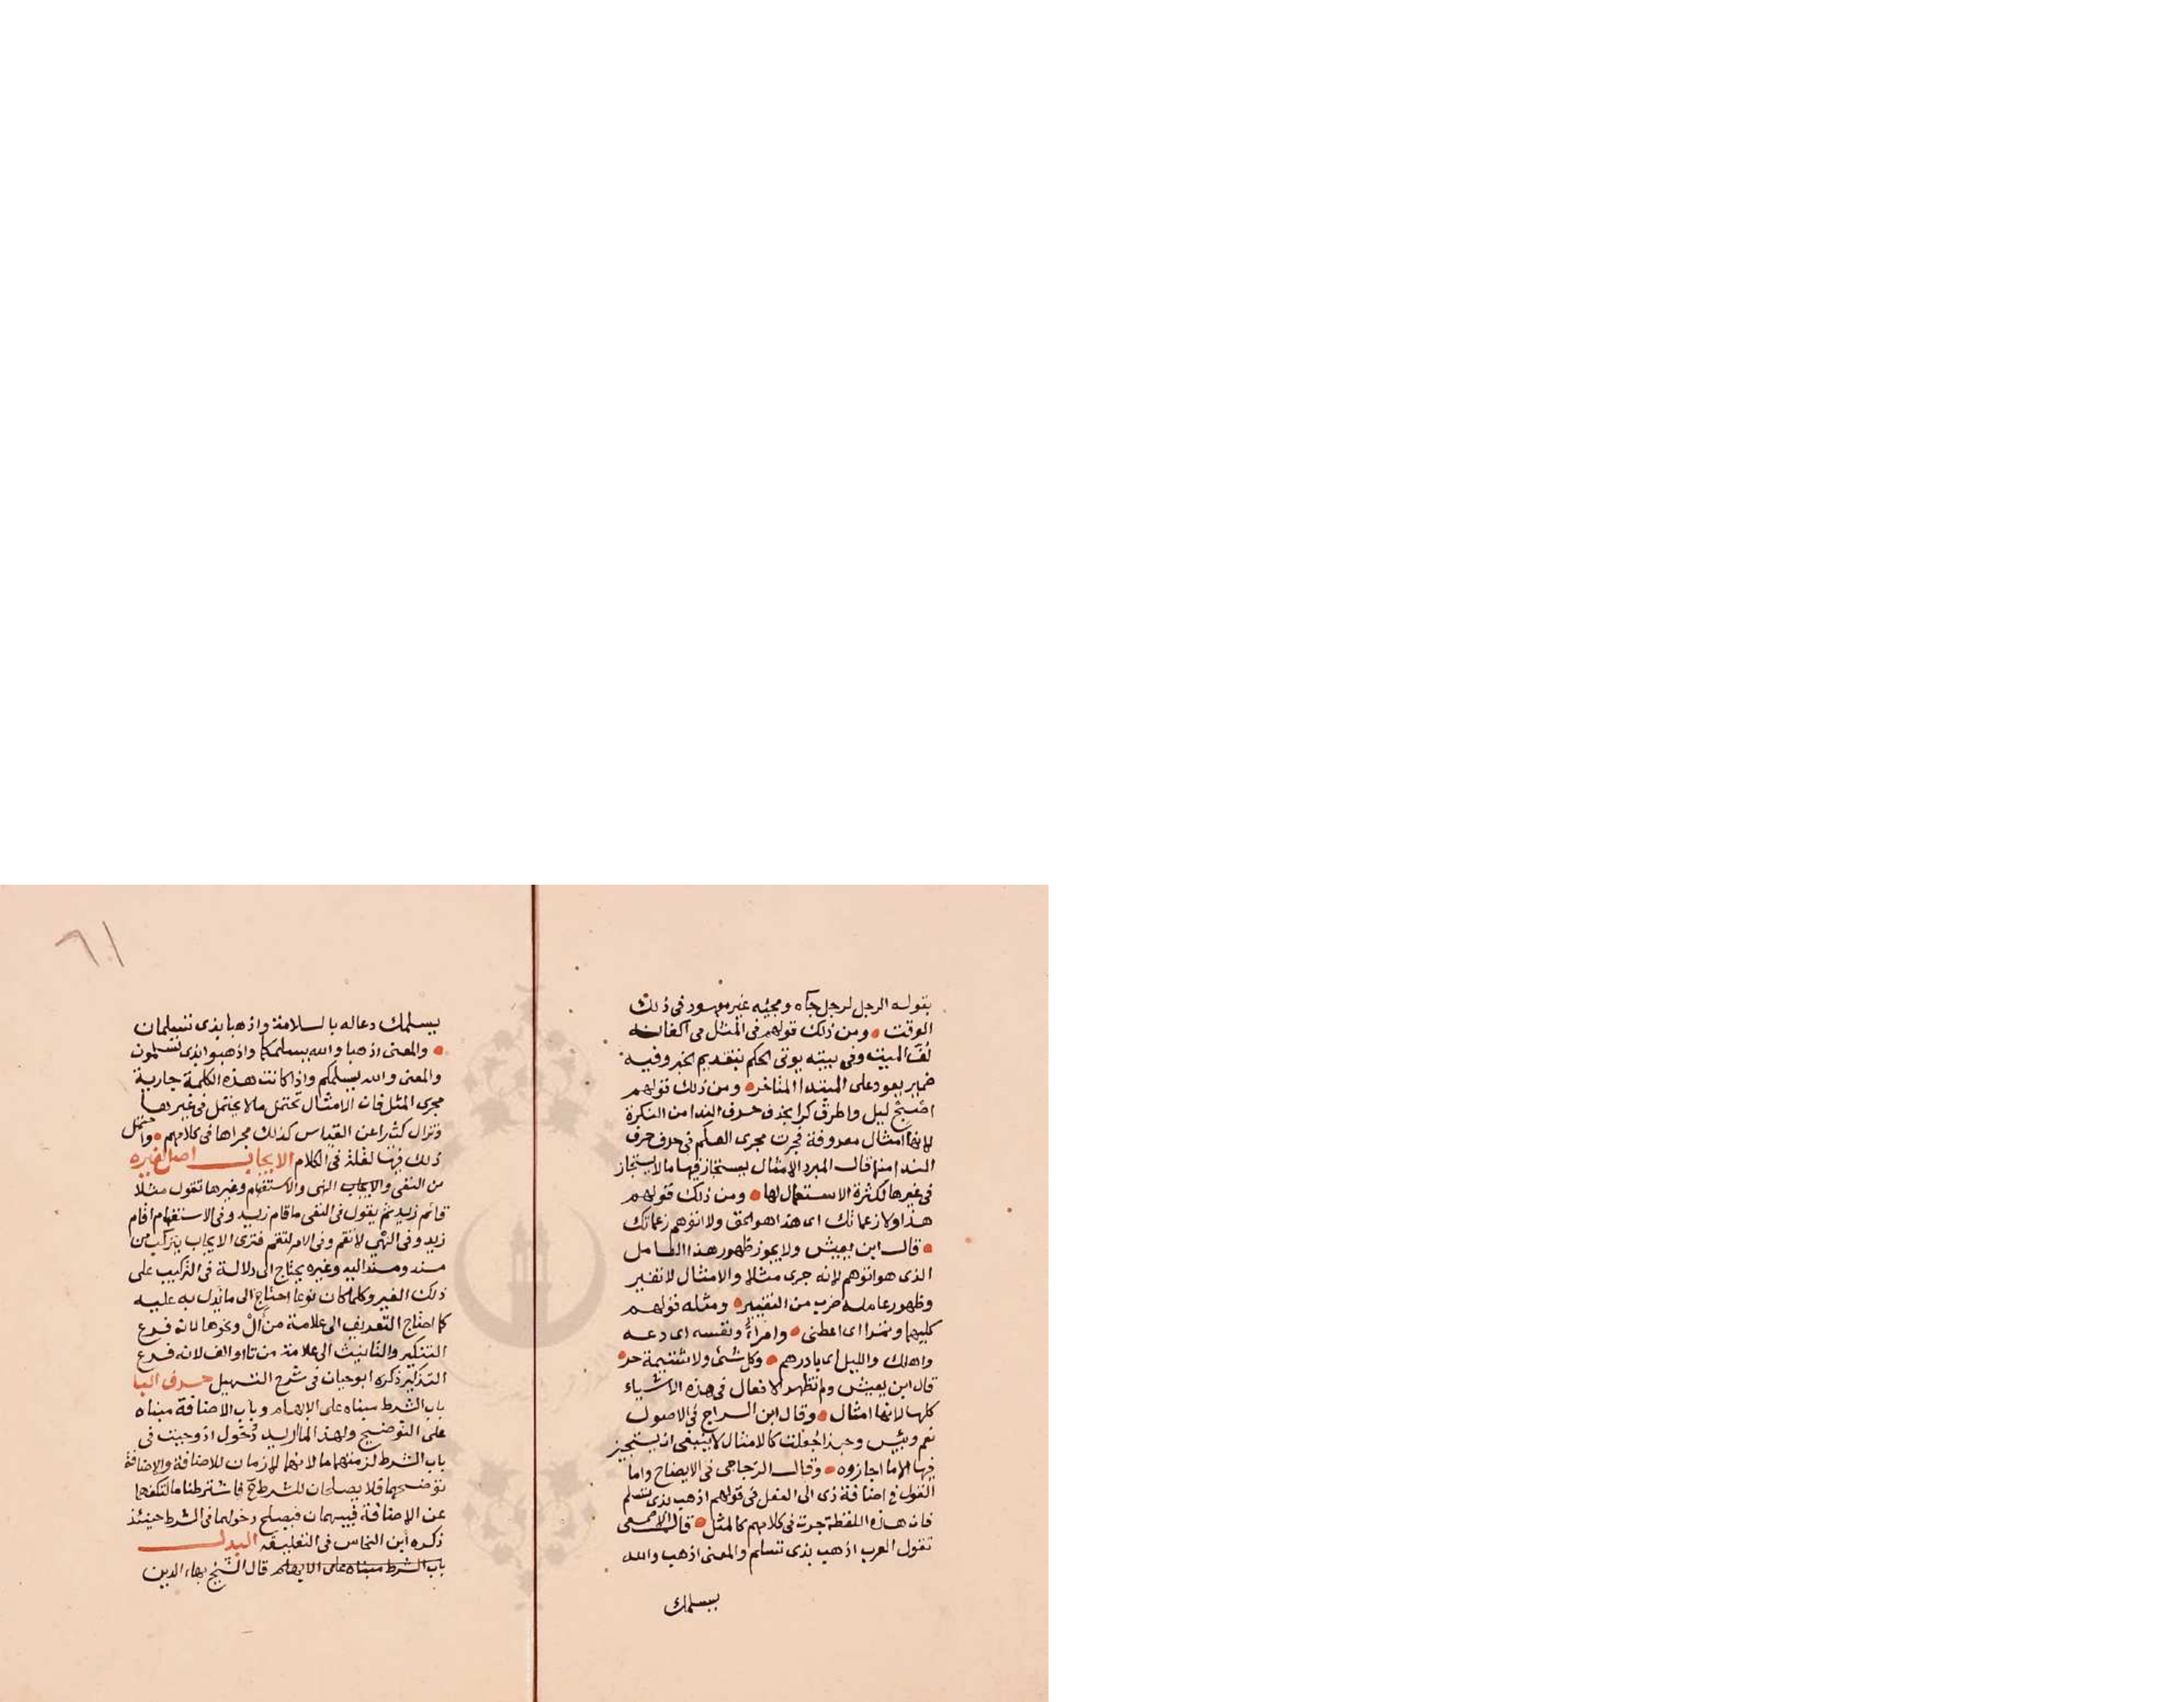 يقوله الرجل لرجل جآه ومجيه غير موسود فى ذلك
الوقت • ومن ذلك قولهم فى المثل فى اكفانه
لف الميت وفى بيته يوتى الحكم بتقديم الخبر وفيه
ضمير يعود على المبتدا المتاخر • ومن ذلك قولهم
اصبح ليل واطرق كرا بحذف حرف الندا من النكرة
لانها امثال معروفة فجرت مجرى العلم فى حذف حرف
الندا منها قال المبرد الامثال يستجاز فيها ما لا يستجاز
فى غيرها لكثرة الاستعمال لها • ومن ذلك قولهم
هذا ولا زعماتك اى هذا هو الحق ولا اتوهم زعماتك
• قال ابن يعيش ولا يجوز ظهور هذا العامل
الذى هو اتوهم لانه جرى مثلا والامثال لا تغير
وظهور عامله ضرب من التغيير • ومثله قولهم
كليهما وتمرا اى اعطنى • وامرأ ونفسه اى دعه
واهلك والليل اى بادرهم • وكل شئ ولا شتيمة حر •
قال ابن يعيش ولم تظهر الافعال فى هذه الاشياء
كلها لانها امثال • وقال ابن السراج فى الاصول
نعم وبئس وحبذا جعلت كالامثال لا ينبغى ان يستجيز
فيها الا ما اجازوه • وقال الزجاجى فى الايضاح واما
القول فى اضافة ذى الى الفعل فى قولهم اذهب بذى تسلم
فان هذه اللفظة جرت فى كلامهم كالمثل • قال الاصمعى
تقول العرب اذهب بذى تسلم والمعنى اذهب والله
يسلمك
٦١
يسلمك دعا له بالسلامة واذهبا بذى تسلمان
• والمعنى اذهبا والله يسلمكما واذهبوا بذى تسلمون
والمعنى والله يسلمكم واذا كانت هذه الكلمة جارية
مجرى المثل فان الامثال تحتمل ما لا يحتمل فى غيرها
وتزال كثيرا عن القياس كذلك مجراها فى كلامهم • واحتمل
ذلك فيها لقلة فى الكلام الايجاب اصل لغيره
من النفى والايجاب النهى والاستفهام وغيرها تقول مثلا
قائم زيد ثم يقول فى النفى ما قام زيد وفى الاستفهام اقام
زيد وفى النهى لا تقم وفى الامر لتقم فترى الايجاب يتركب من
مسند ومسند اليه وغيره يحتاج الى دلالة فى التركيب على
ذلك الغير وكلما كان نوعا احتاج الى ما يدل به عليه
كما احتاج التعريف الى علامة من أل ونحوها لانه فرع
التنكير والتانيث الى علامة من تا او الف لانه فرع
التذكير ذكره ابو حيان فى شرح التسهيل حرف البا
باب الشرط مبناه على الابهام وباب الاضافة مبناه
على التوضيح ولهذا لما اريد دخول اذ وحيث فى
باب الشرط لزمتهما ما لانهما لازمان للاضافة والاضافة
توضحهما فلا يصلحان للشرط ح فاشترطنا ما لتكفهما
عن الاضافة فيبهمان فيصلح دخولهما فى الشرط حينئذ
ذكره ابن النحاس فى التعليقه البدل
باب الشرط مبناه على الابهام قال الشيخ بهاء الدين